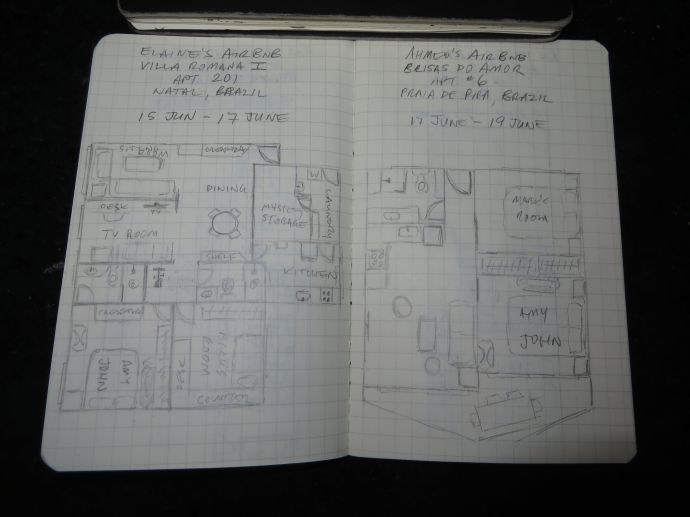 ELAINE'S AIRBNB
VILLA ROMANA I
APT. 201
NATAL, BRAZIL
15 JUN - 17 JUNE
DINING
DESK
MUSIC
STORAGE
LAUNDRY
W
TV ROOM
SHELF
KITCHEN
AMY
JOHN
DESK
ROOM
COUNTER
AHMED'S AIRBNB
BRISAS DO AMOR
APT #6
PRAIA DE PIPA, BRAZIL
17 JUNE - 19 JUNE
MARK'S
ROOM
AMY
JOHN